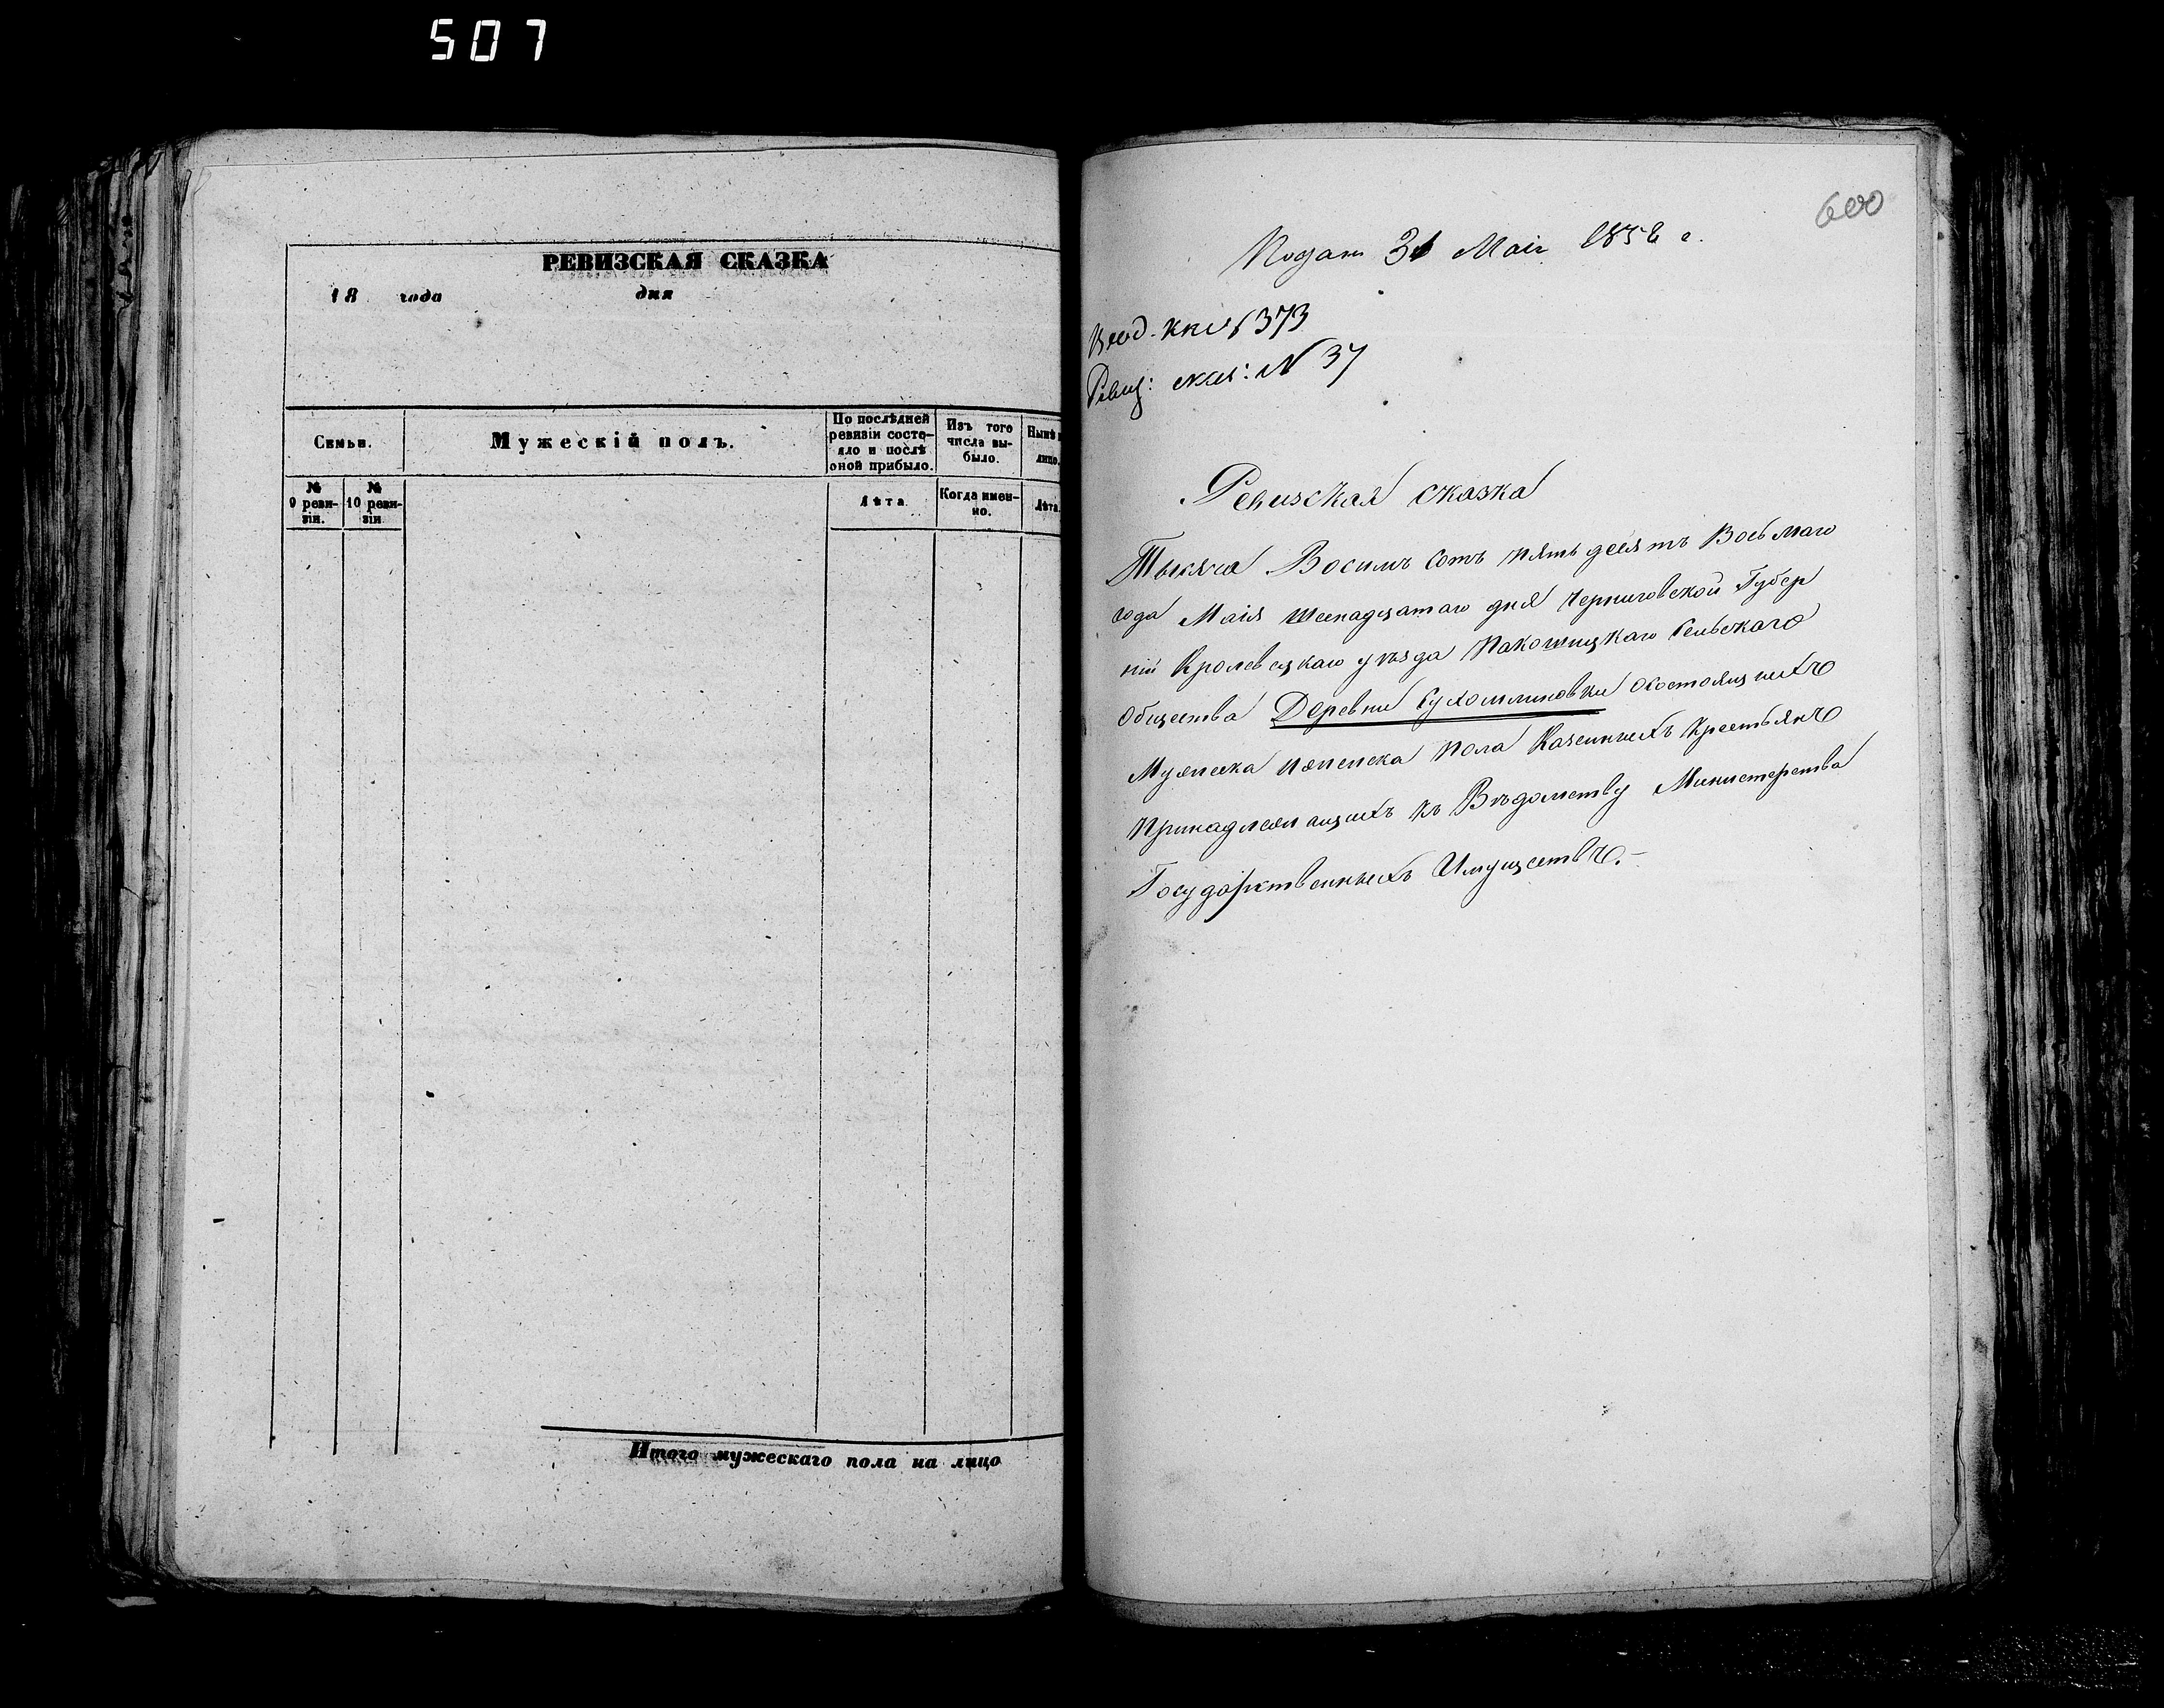 507
РЕВИЗСКАЯ СКАЗКА
18 года дня
Семьи.
Мужескій полъ.
По послѣдней ревизіи состояло и послѣ оной прибыло.
Изъ того числа выбыло.
Нынѣ
лицо.
№ 9 ревизіи.
№ 10 ревизіи
Лѣта.
Когда именно.
Лѣта.
Итого мужескаго пола на лицо
600
Подана 31 Маія 1858 г.
373
Ревиз: сказ: № 37
Ревизская сказка
Тысяча Восимъ сотъ пятьдесятъ Восьмаго
года Маія Шеснадцатаго дня Черниговской Губер
ніи Кролевецкаго уѣзда Пакошицкаго Сельскаго
Общества Деревни Сухомлиновки Осостоящихъ
Мужеска иженска пола Казенныхъ Крестьянъ
Принадлежащихъ къ Вѣдомству Министерства
Государственныхъ Имуществъ.-